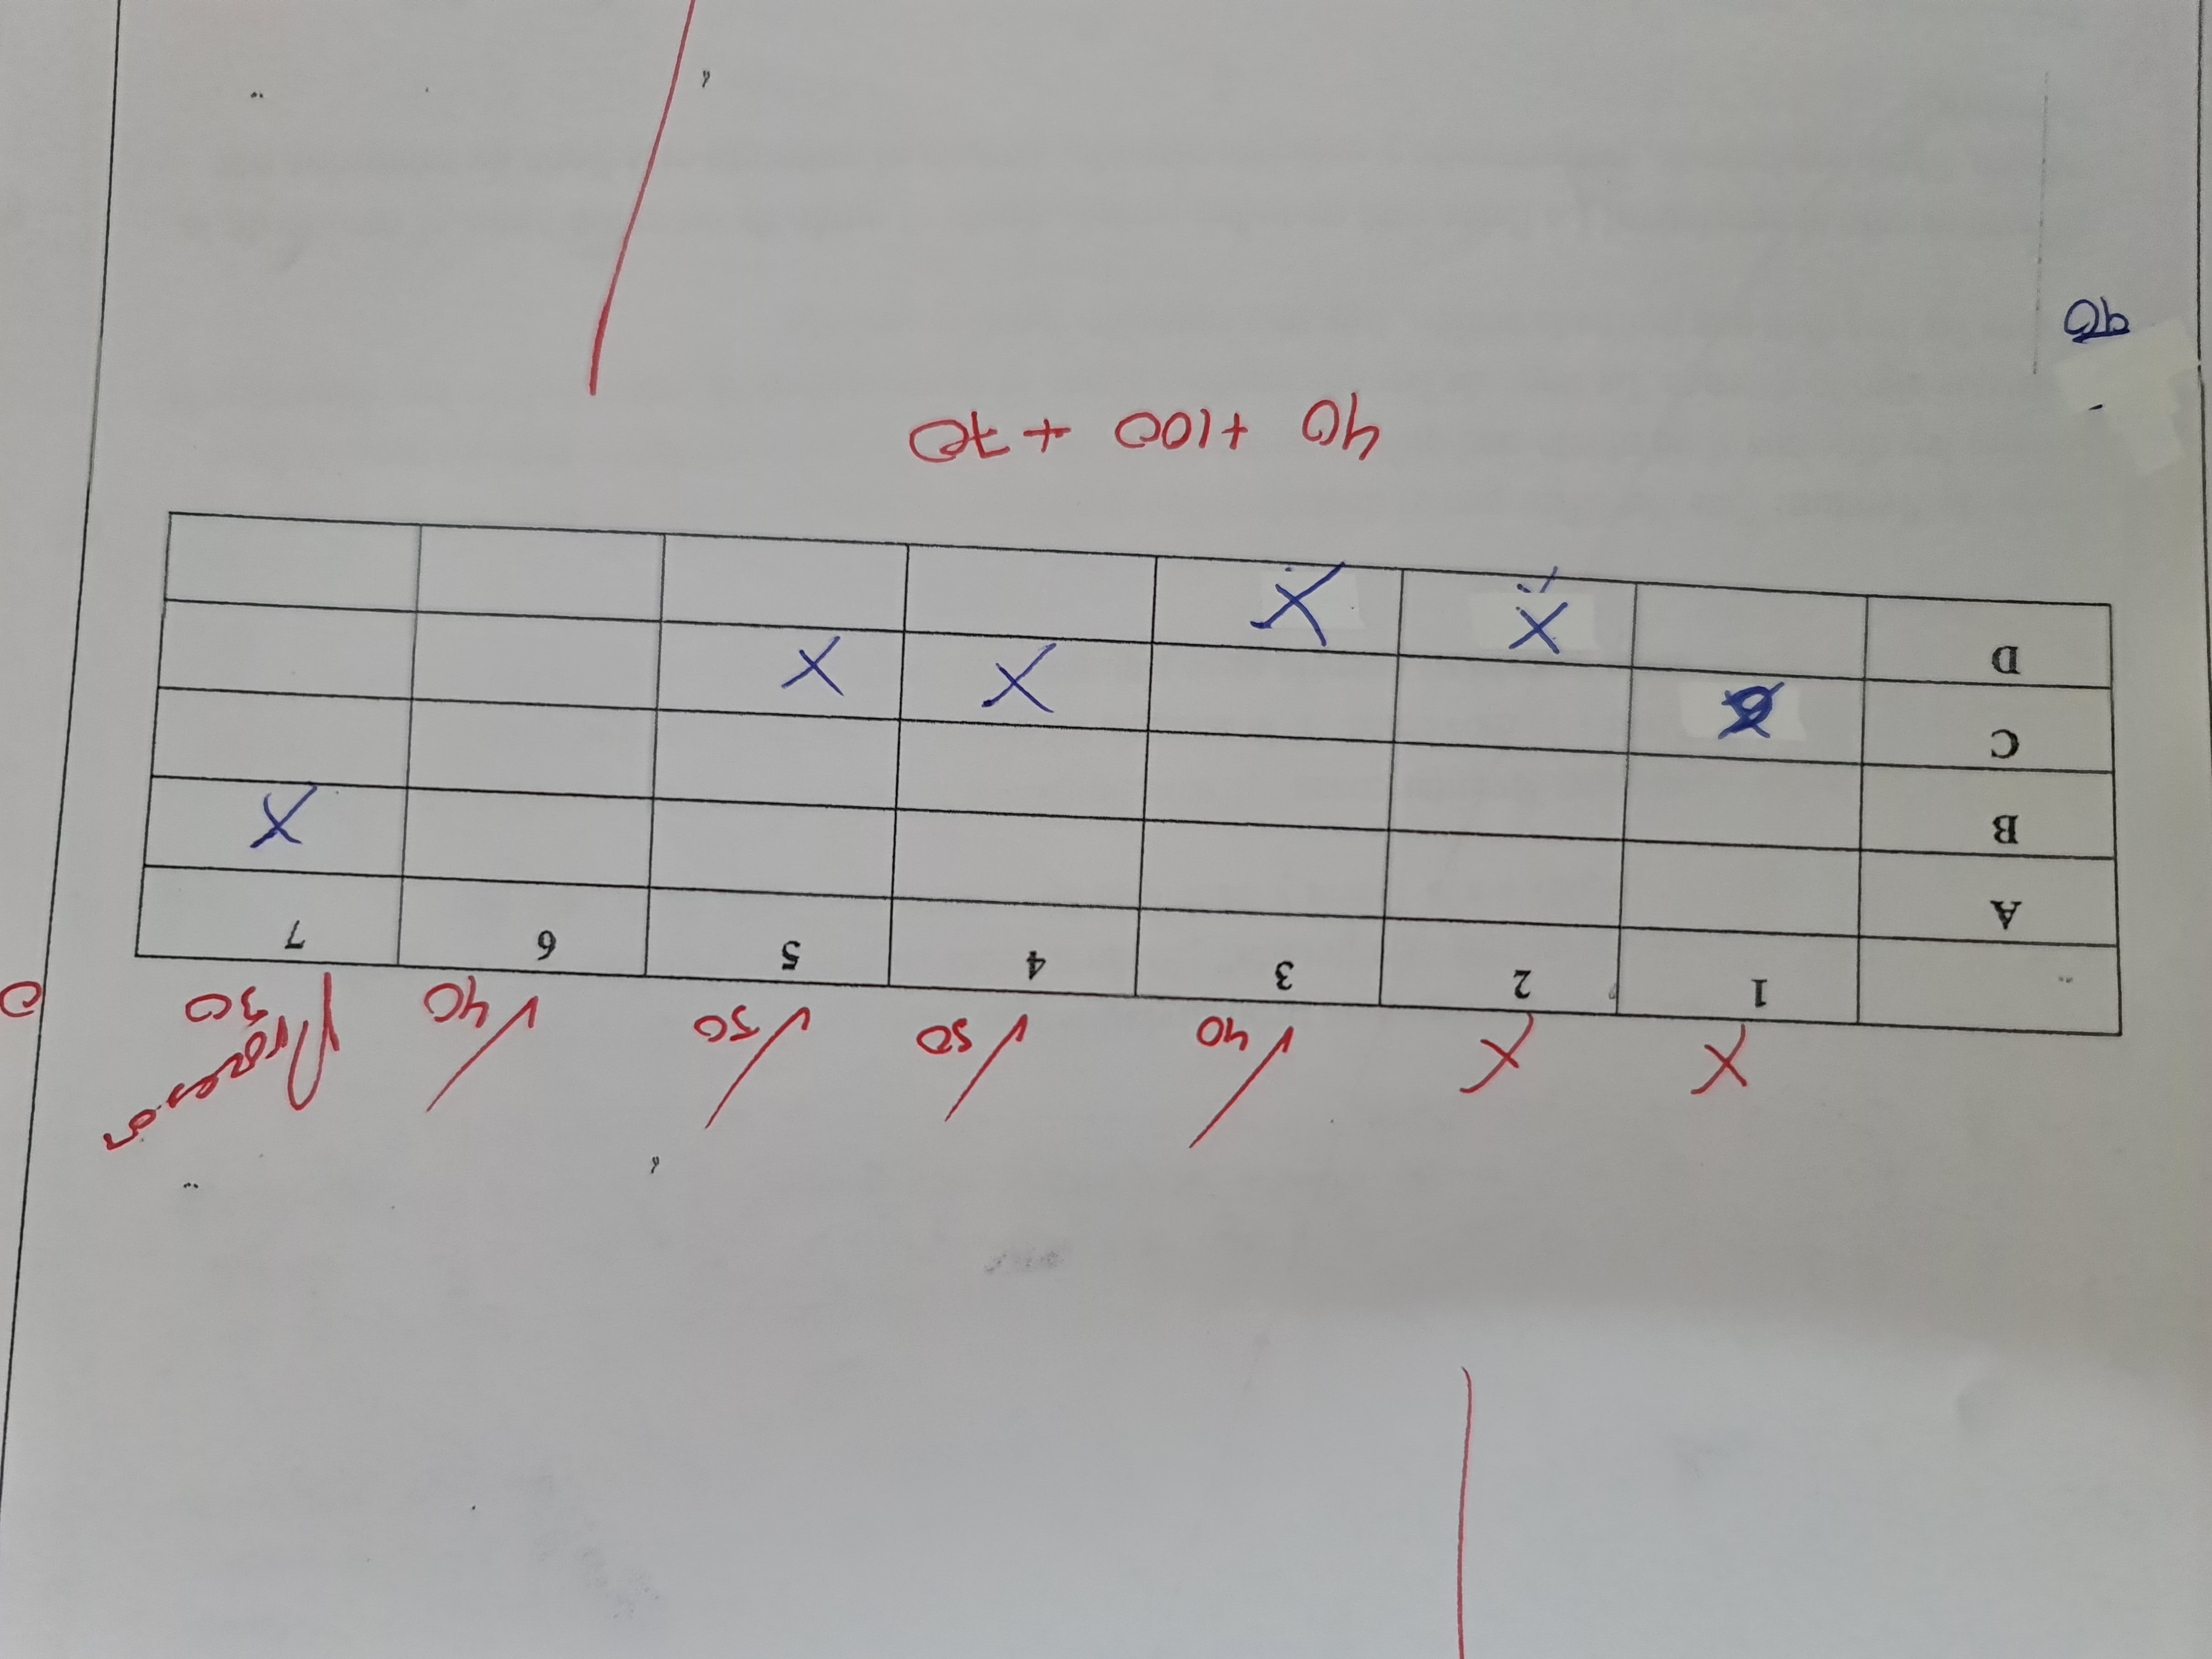 X X ✓ ✓ ✓ ✓
40 50 50 40 30
1 2 3 4 5 6 7
A X
B
C X X X
D X X
40 + 100 + 70